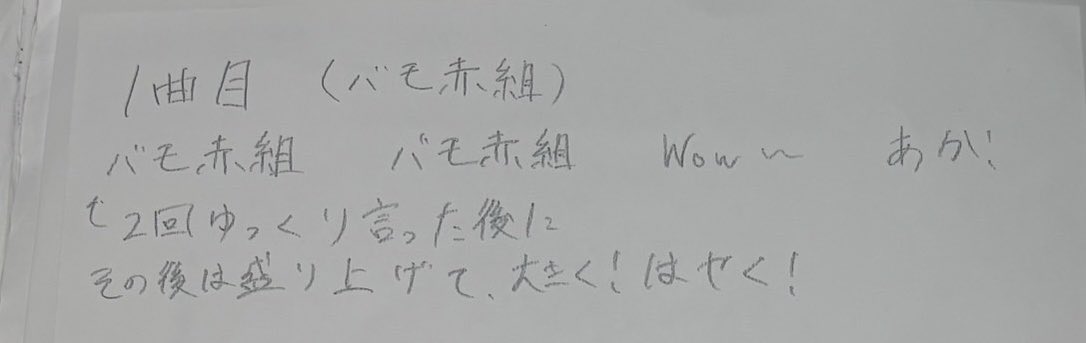 1曲目 （バモ赤組）
バモ赤組 バモ赤組 Wow〜 あか！
て2回ゆっくり言った後に
その後は盛り上げて、大きく！はやく！